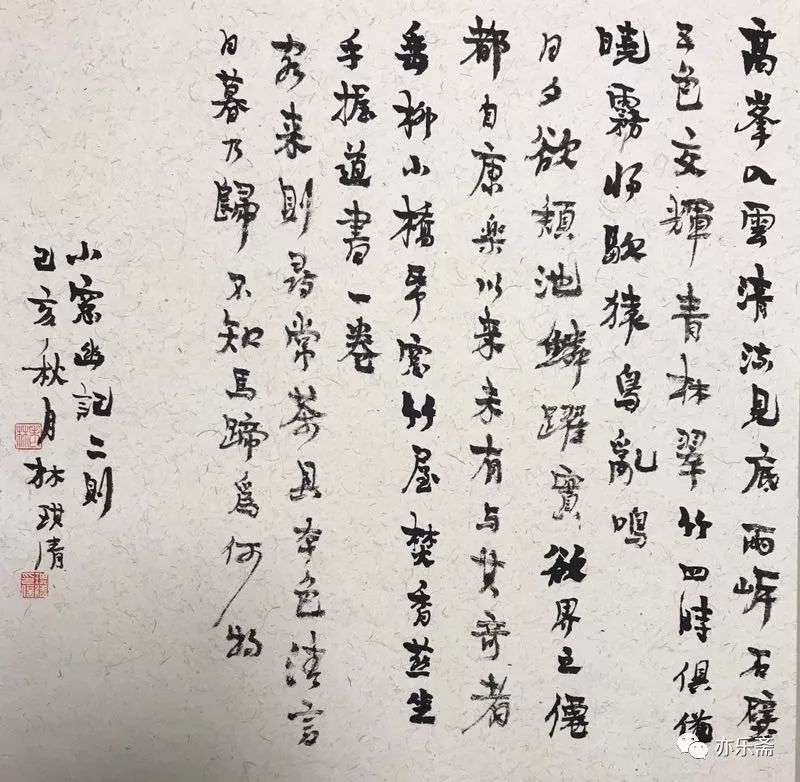 高峯入雲清流見底兩岸石壁
五色交輝青林翠竹四時俱備
曉霧將歇猿鳥亂鳴
日夕欲頹池鱗躍實欲界之僊
都自康楽以来未有与其奇者
垂柳小橋帋窓竹屋焚香燕坐
手握道書一卷
客来則尋常茶具本色清言
日暮乃歸不知馬蹄爲何物
小窓幽記二則
己亥秋月林清
亦乐斋